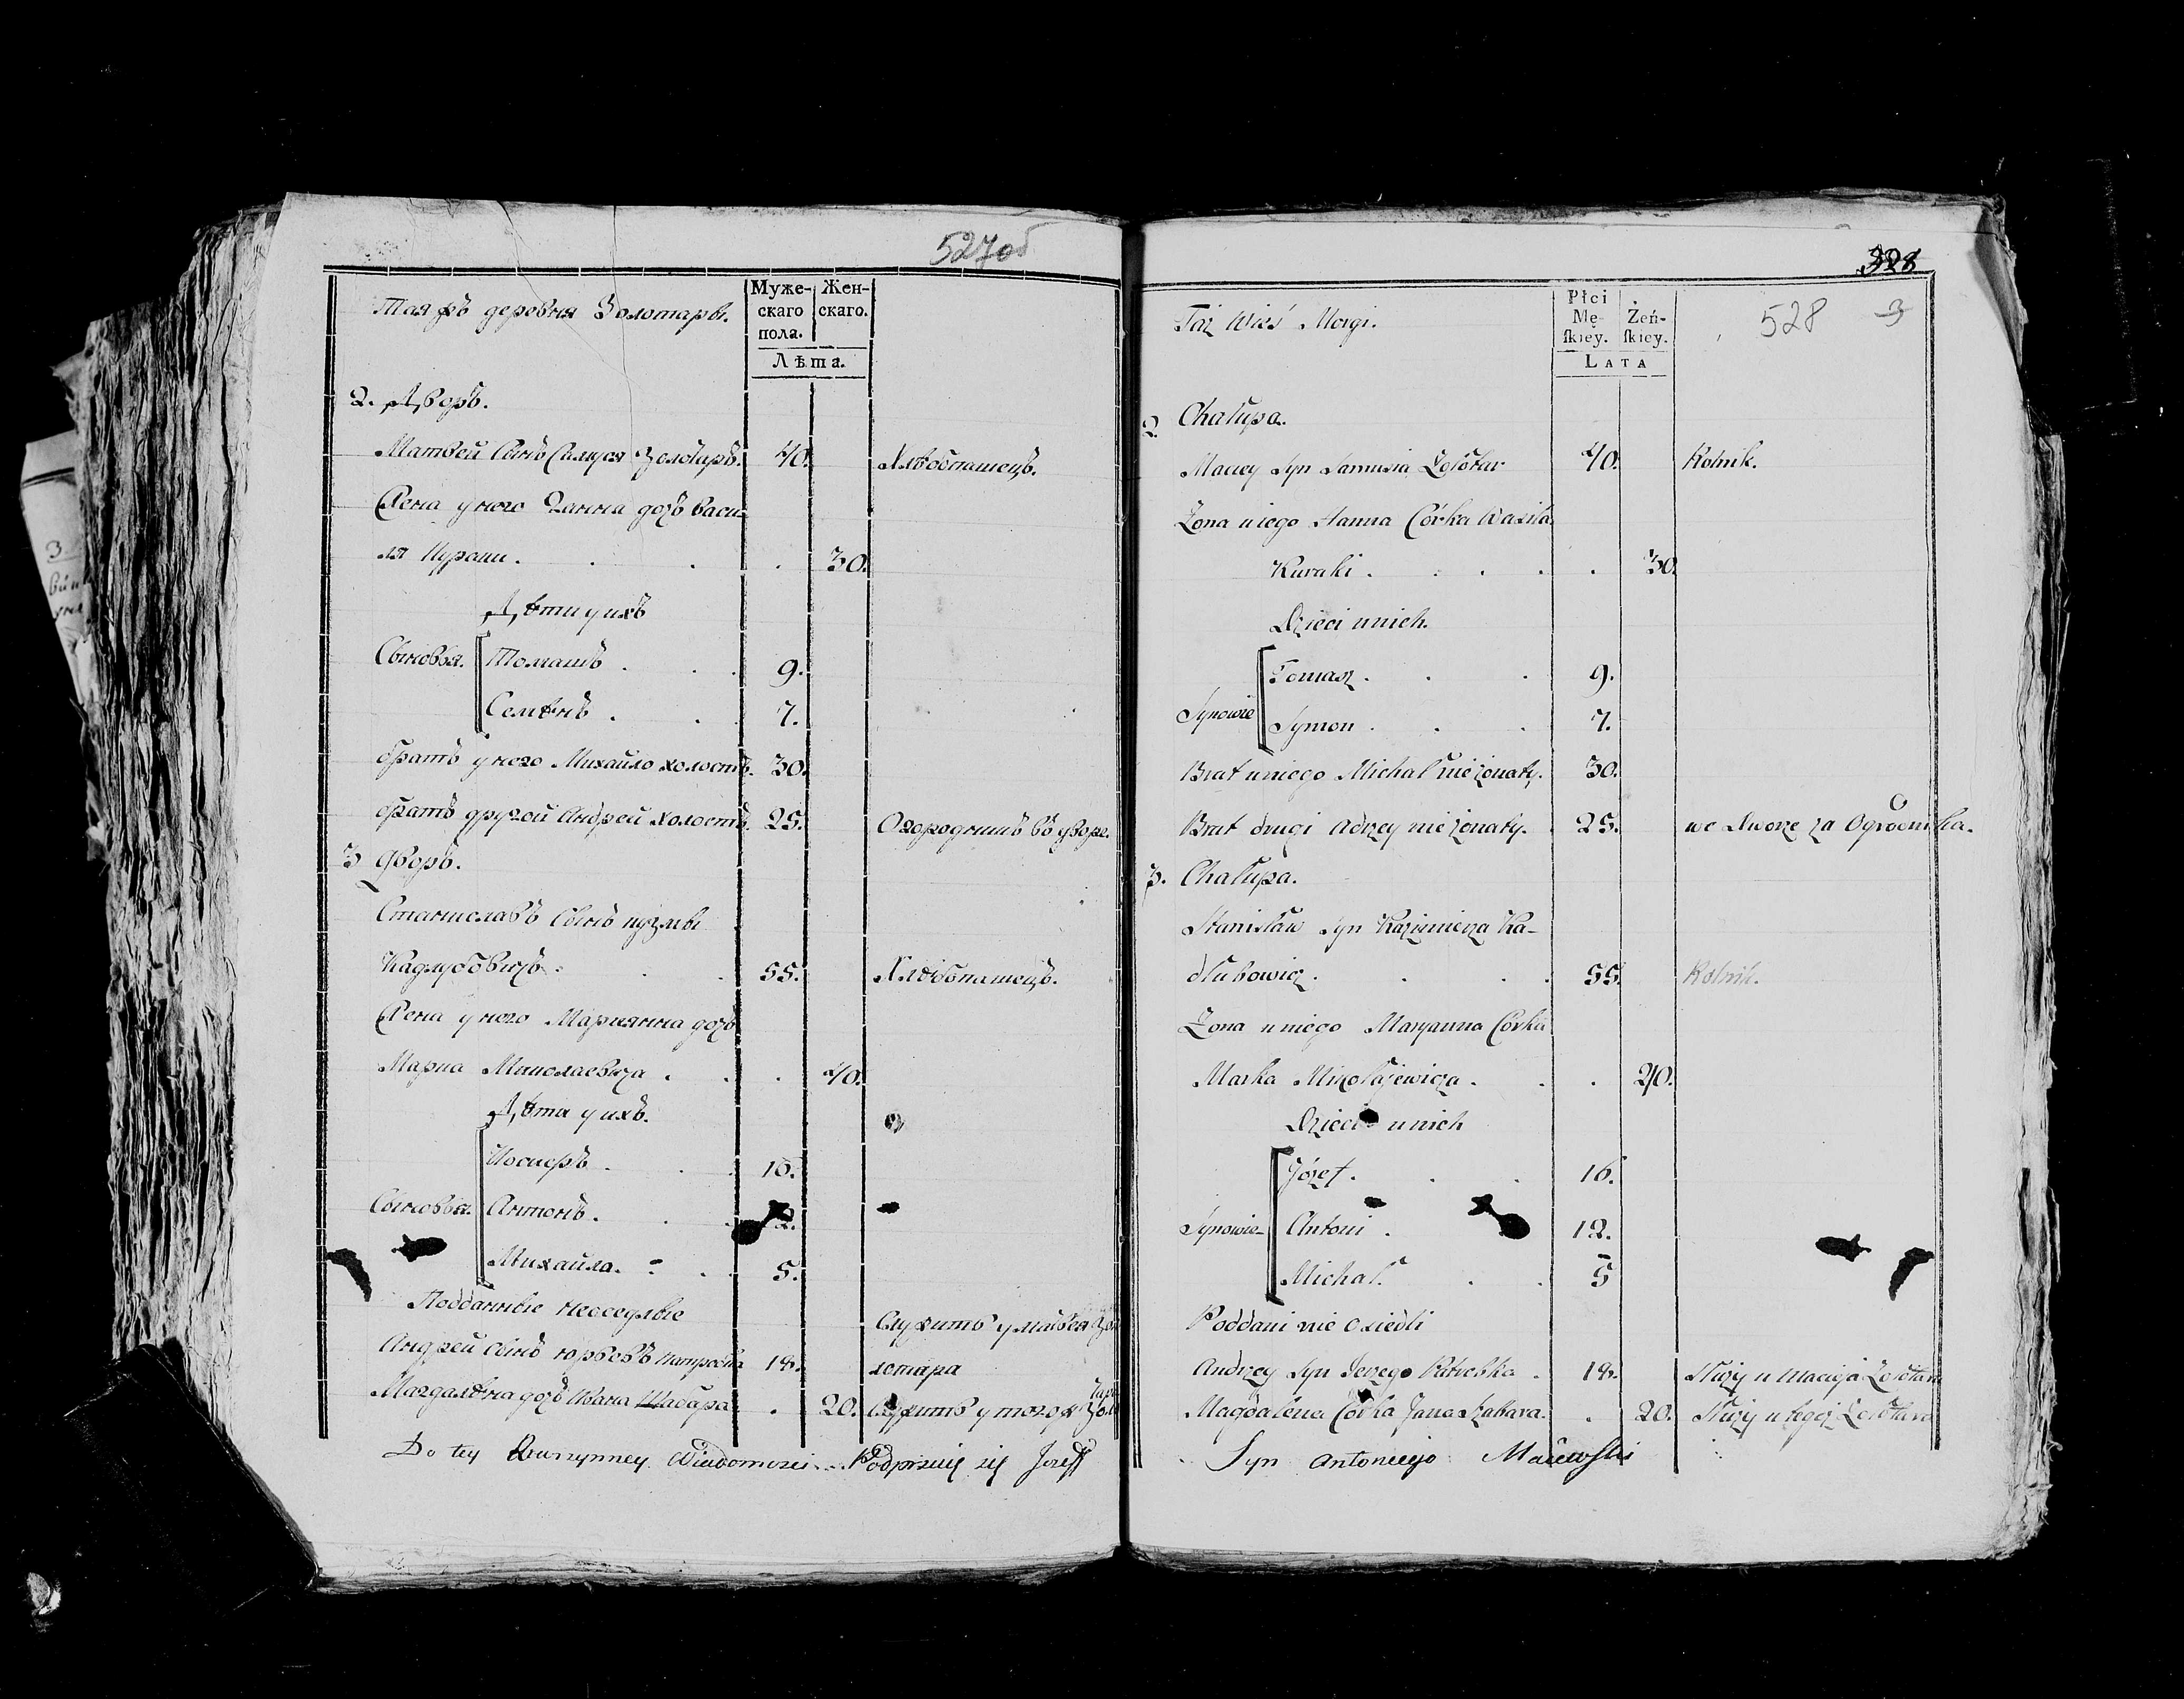 527об
Таяжъ деревня Золотары.
Муже-
скаго
пола.
Жен-
скаго.
Лѣта.
2. Дворъ.
Матвей Сынъ Самуся Золотаръ. 40. Хлѣбопашецъ.
Жена у него Ганна дочъ Васи-
ля Кураки . . . . 30.
Дѣти у ихъ
Томашъ . . . 9.
Сыновья.
Семѣнъ . . 7.
братъ у него Михайло холостъ. 30.
братъ другой Андрей холостъ. 25. Огородникъ въ дворе.
3 дворъ.
Станиславъ Сынъ кузмы
Кадлубовичъ . . . 55. Хлѣбопашецъ.
Жена у него Марианна дочъ
Марка Миколаевича . . . 40.
Дѣти у ихъ.
Иосифъ . . . 16.
Сыновья. Антонъ . . . 12.
Михайла. . . 5.
Подданные неоседлые
Служитъ у матвея Зо
Андрей сынъ юрьевъ 18. лотара
Магдалѣна дочъ Ивана Шабара . 20. Служитъ у тогож Золотара
Do tey Wiadomosci Podpisuię się Jozeff
328
528 3
Taż Wieś Morgi.
Płci
Mę-
ſkiey.
Żeń-
ſkiey.
LATA
2. Chałupa.
Maciey Syn Samusia Zołotar 40. Rolnik.
Żona u niego Hanna Córka Wasila
Kuraki . . . . . 30.
Dzieci u nich.
Tomasz . . . 9.
Synowie
Symon . . . 7.
Brat u niego Michał nie żonaty. 30.
Brat drugi Adrzey nie żonaty. 25. we Dworze za Ogrodnika.
3. Chałupa.
Stanisław Syn Kazimierza Ka-
dłubowicz . . . . 55. Rolnik.
Żona u niego Maryanna Córka
Marka Mikołajewicza . . . 40.
Dzieci u nich
Józef . . . 16.
Synowie Antoni . 12.
Michał . . 5
Poddani nie Osiedli
Andrzey Syn Jerzego . 18. Służy u Macieja Zołotara
Magdalena Córka Jana Szabara. . 20. Służy u tegoż Zołotara
Syn Antoniego